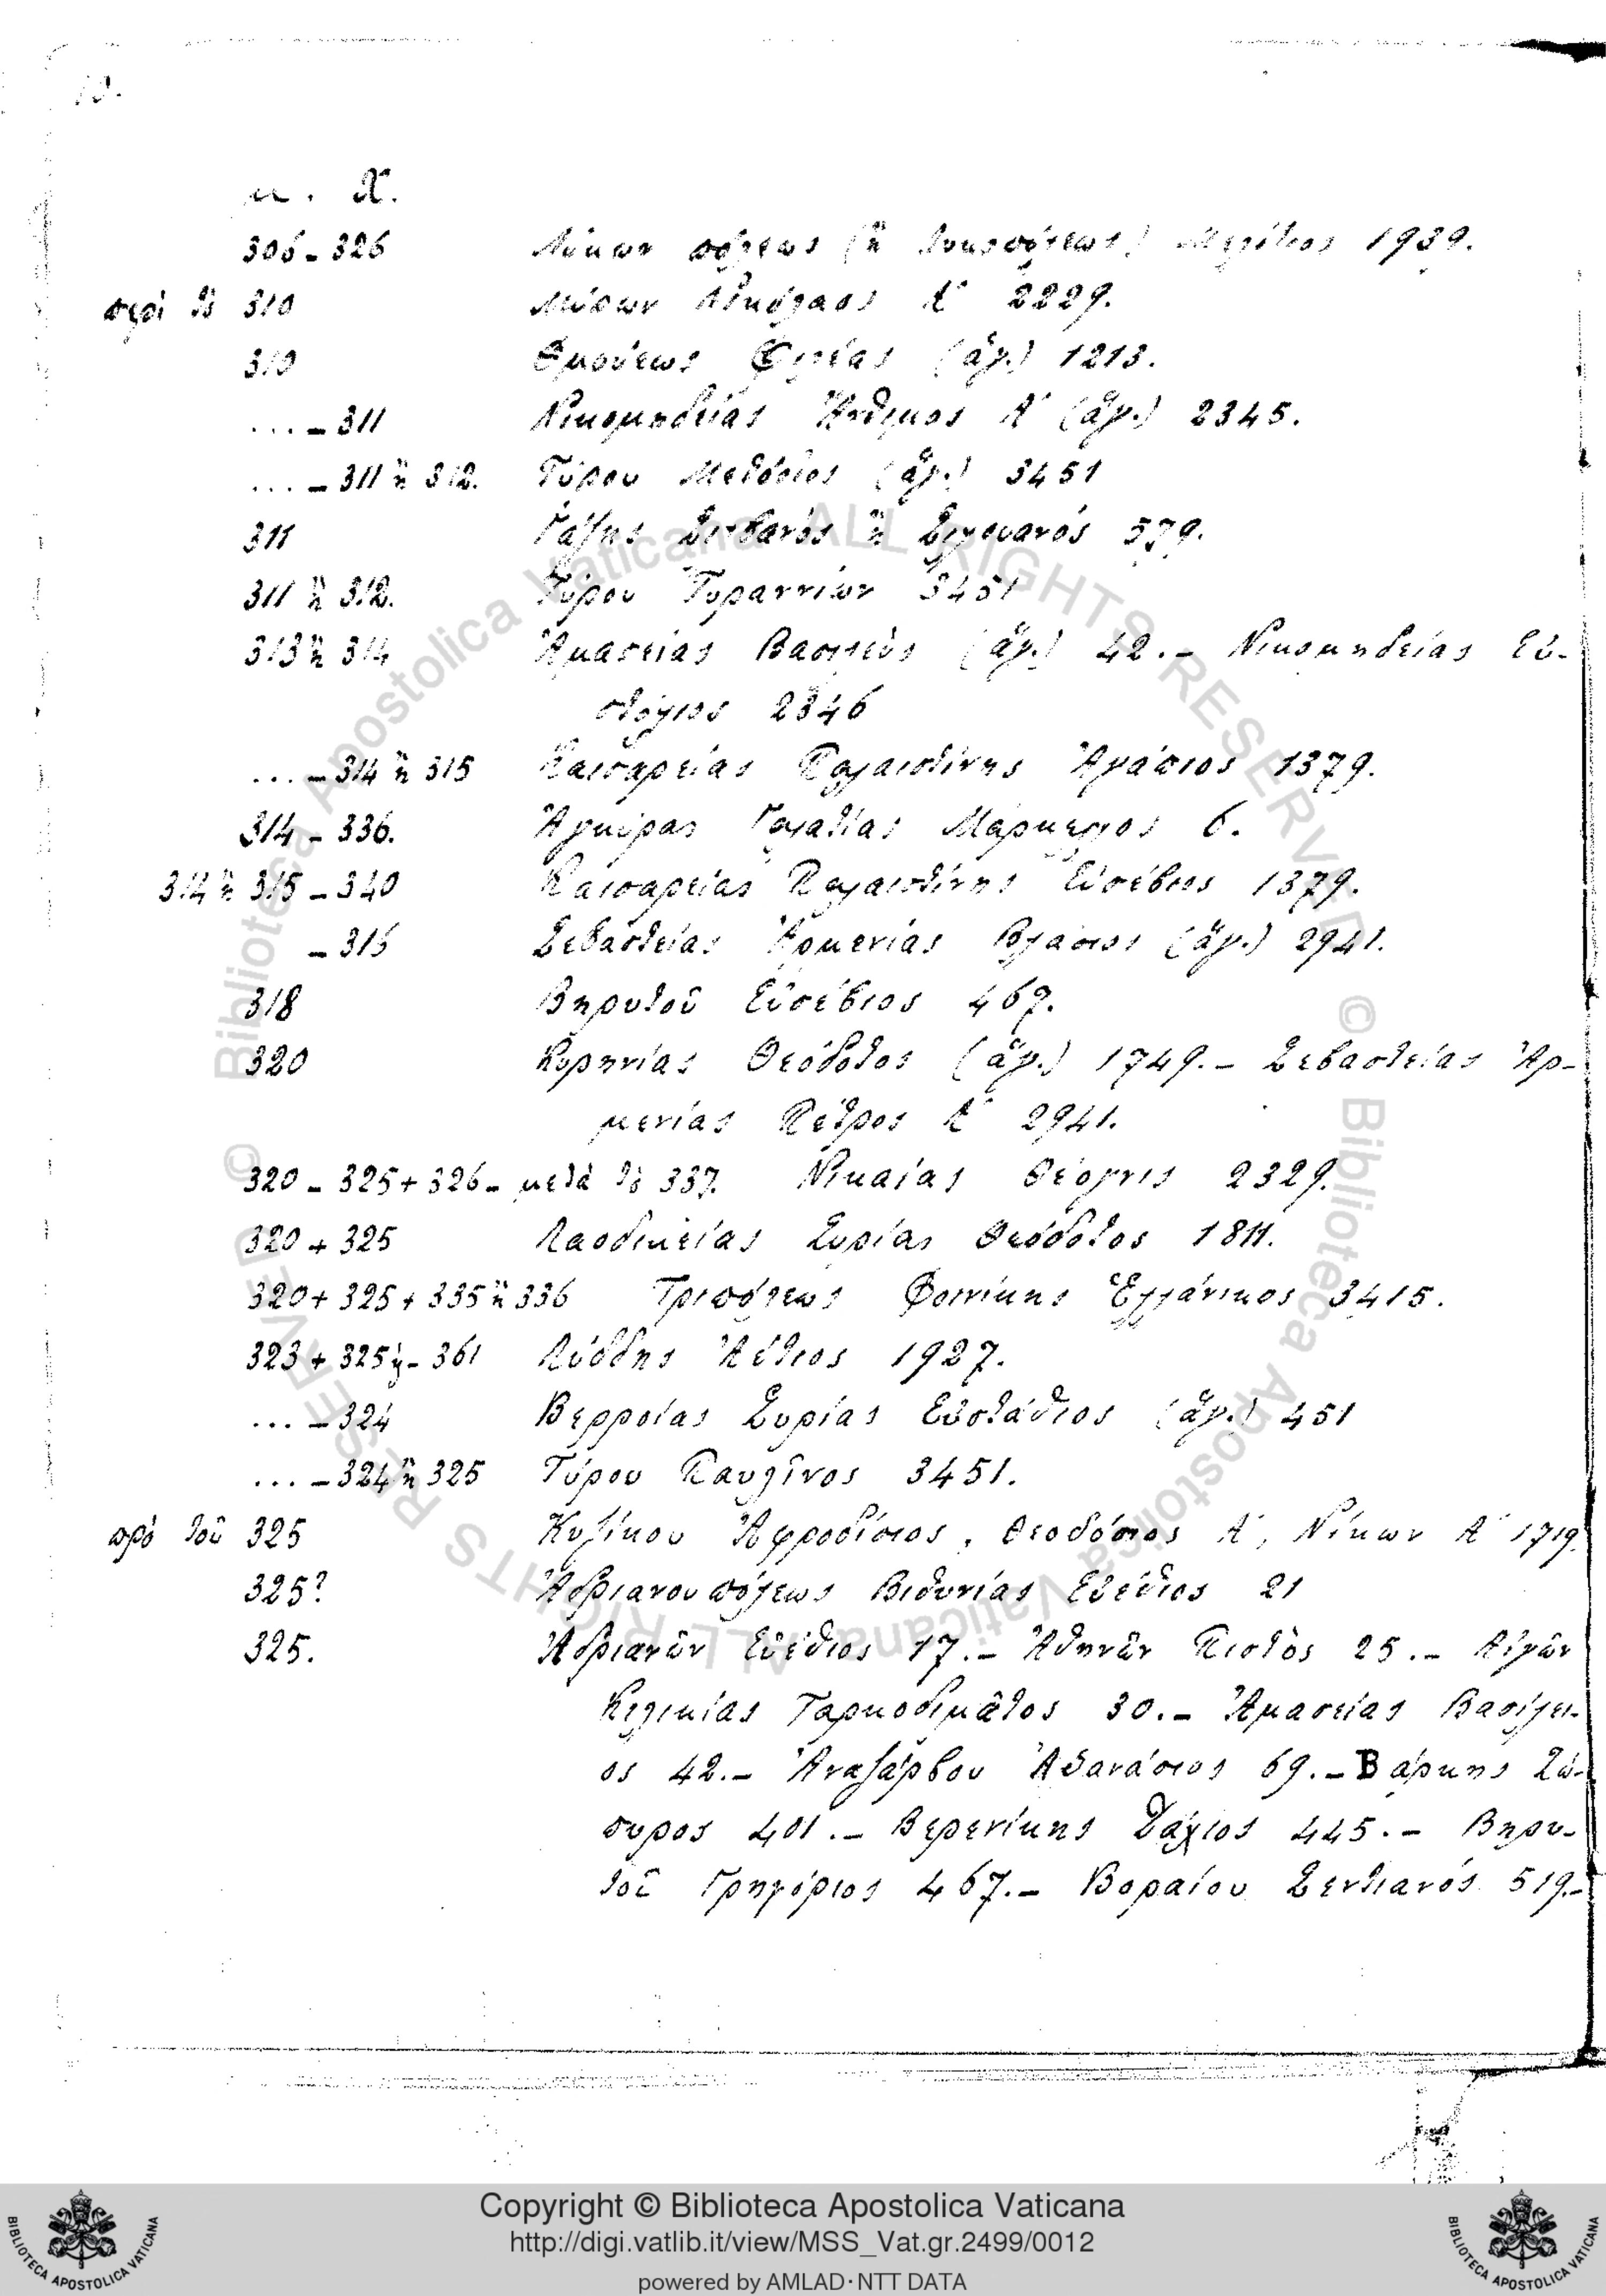 10.
μ. Χ.
306 - 326 Λύκων πόλεως (ἢ Λυκοπόλεως) Μελέτιος 1939.
περὶ τὸ 310 Μύρων Νικόλαος Α΄ 2229.
310 Θμούεως Φιλέας (ἅγ.) 1213.
... - 311 Νικομηδείας Ἄνθιμος Α΄ (ἅγ.) 2345.
... - 311 ἢ 312. Τύρου Μεθόδιος (ἅγ.) 3451
311 Γάζης Σιλβανός ἢ Σιλουανός 579.
311 ἢ 312. Τύρου Τυραννίων 3451
313 ἢ 314 Ἀμασείας Βασιλεὺς (ἅγ.) 42. - Νικομηδείας Εὐ-
στόλιος 2346
... - 314 ἢ 315 Καισαρείας Παλαιστίνης Ἀγάπιος 1379.
314 - 336. Ἀγκύρας Γαλατίας Μάρκελλος 6.
314 ἢ 315 - 340 Καισαρείας Παλαιστίνης Εὐσέβιος 1379.
- 316 Σεβαστείας Ἀρμενίας Βλάσιος (ἅγ.) 2941.
318 Βηρυτοῦ Εὐσέβιος 467.
320 Κυρηνίας Θεόδοτος (ἅγ.) 1749. - Σεβαστείας Ἀρ-
μενίας Πέτρος Α΄ 2941.
320 - 325 + 326 - μετὰ τὸ 337. Νικαίας Θέογνις 2329.
320 + 325 Λαοδικείας Συρίας Θεόδοτος 1811.
320 + 325 + 335 ἢ 336 Τριπόλεως Φοινίκης Ἑλλάνικος 3415.
323 + 325 - 361 Λύδδης Ἀέτιος 1927.
... - 324 Βερροίας Συρίας Εὐστάθιος (ἅγ.) 451
... - 324 ἢ 325 Τύρου Παυλῖνος 3451.
πρὸ τοῦ 325 Κυζίκου Ἀφροδίσιος, Θεοδόσιος Α΄, Νίκων Α΄ 1719.
325? Ἀδριανουπόλεως Βιθυνίας Εὐέθιος 21
325. Ἀδριανῶν Εὐέθιος 17. - Ἀθηνῶν Πιστὸς 25. - Αἰγῶν
Κιλικίας Ταρκοδιμᾶτος 30. - Ἀμασείας Βασίλει-
ος 42. - Ἀναζάρβου Ἀθανάσιος 69. - Βάρκης Ζώ-
πυρος 401. - Βερενίκης Δάχιος 445. - Βηρυ-
τοῦ Γρηγόριος 467. - Βοραίου Σεντιανός 519. -
Copyright © Biblioteca Apostolica Vaticana
http://digi.vatlib.it/view/MSS_Vat.gr.2499/0012
powered by AMLAD·NTT DATA